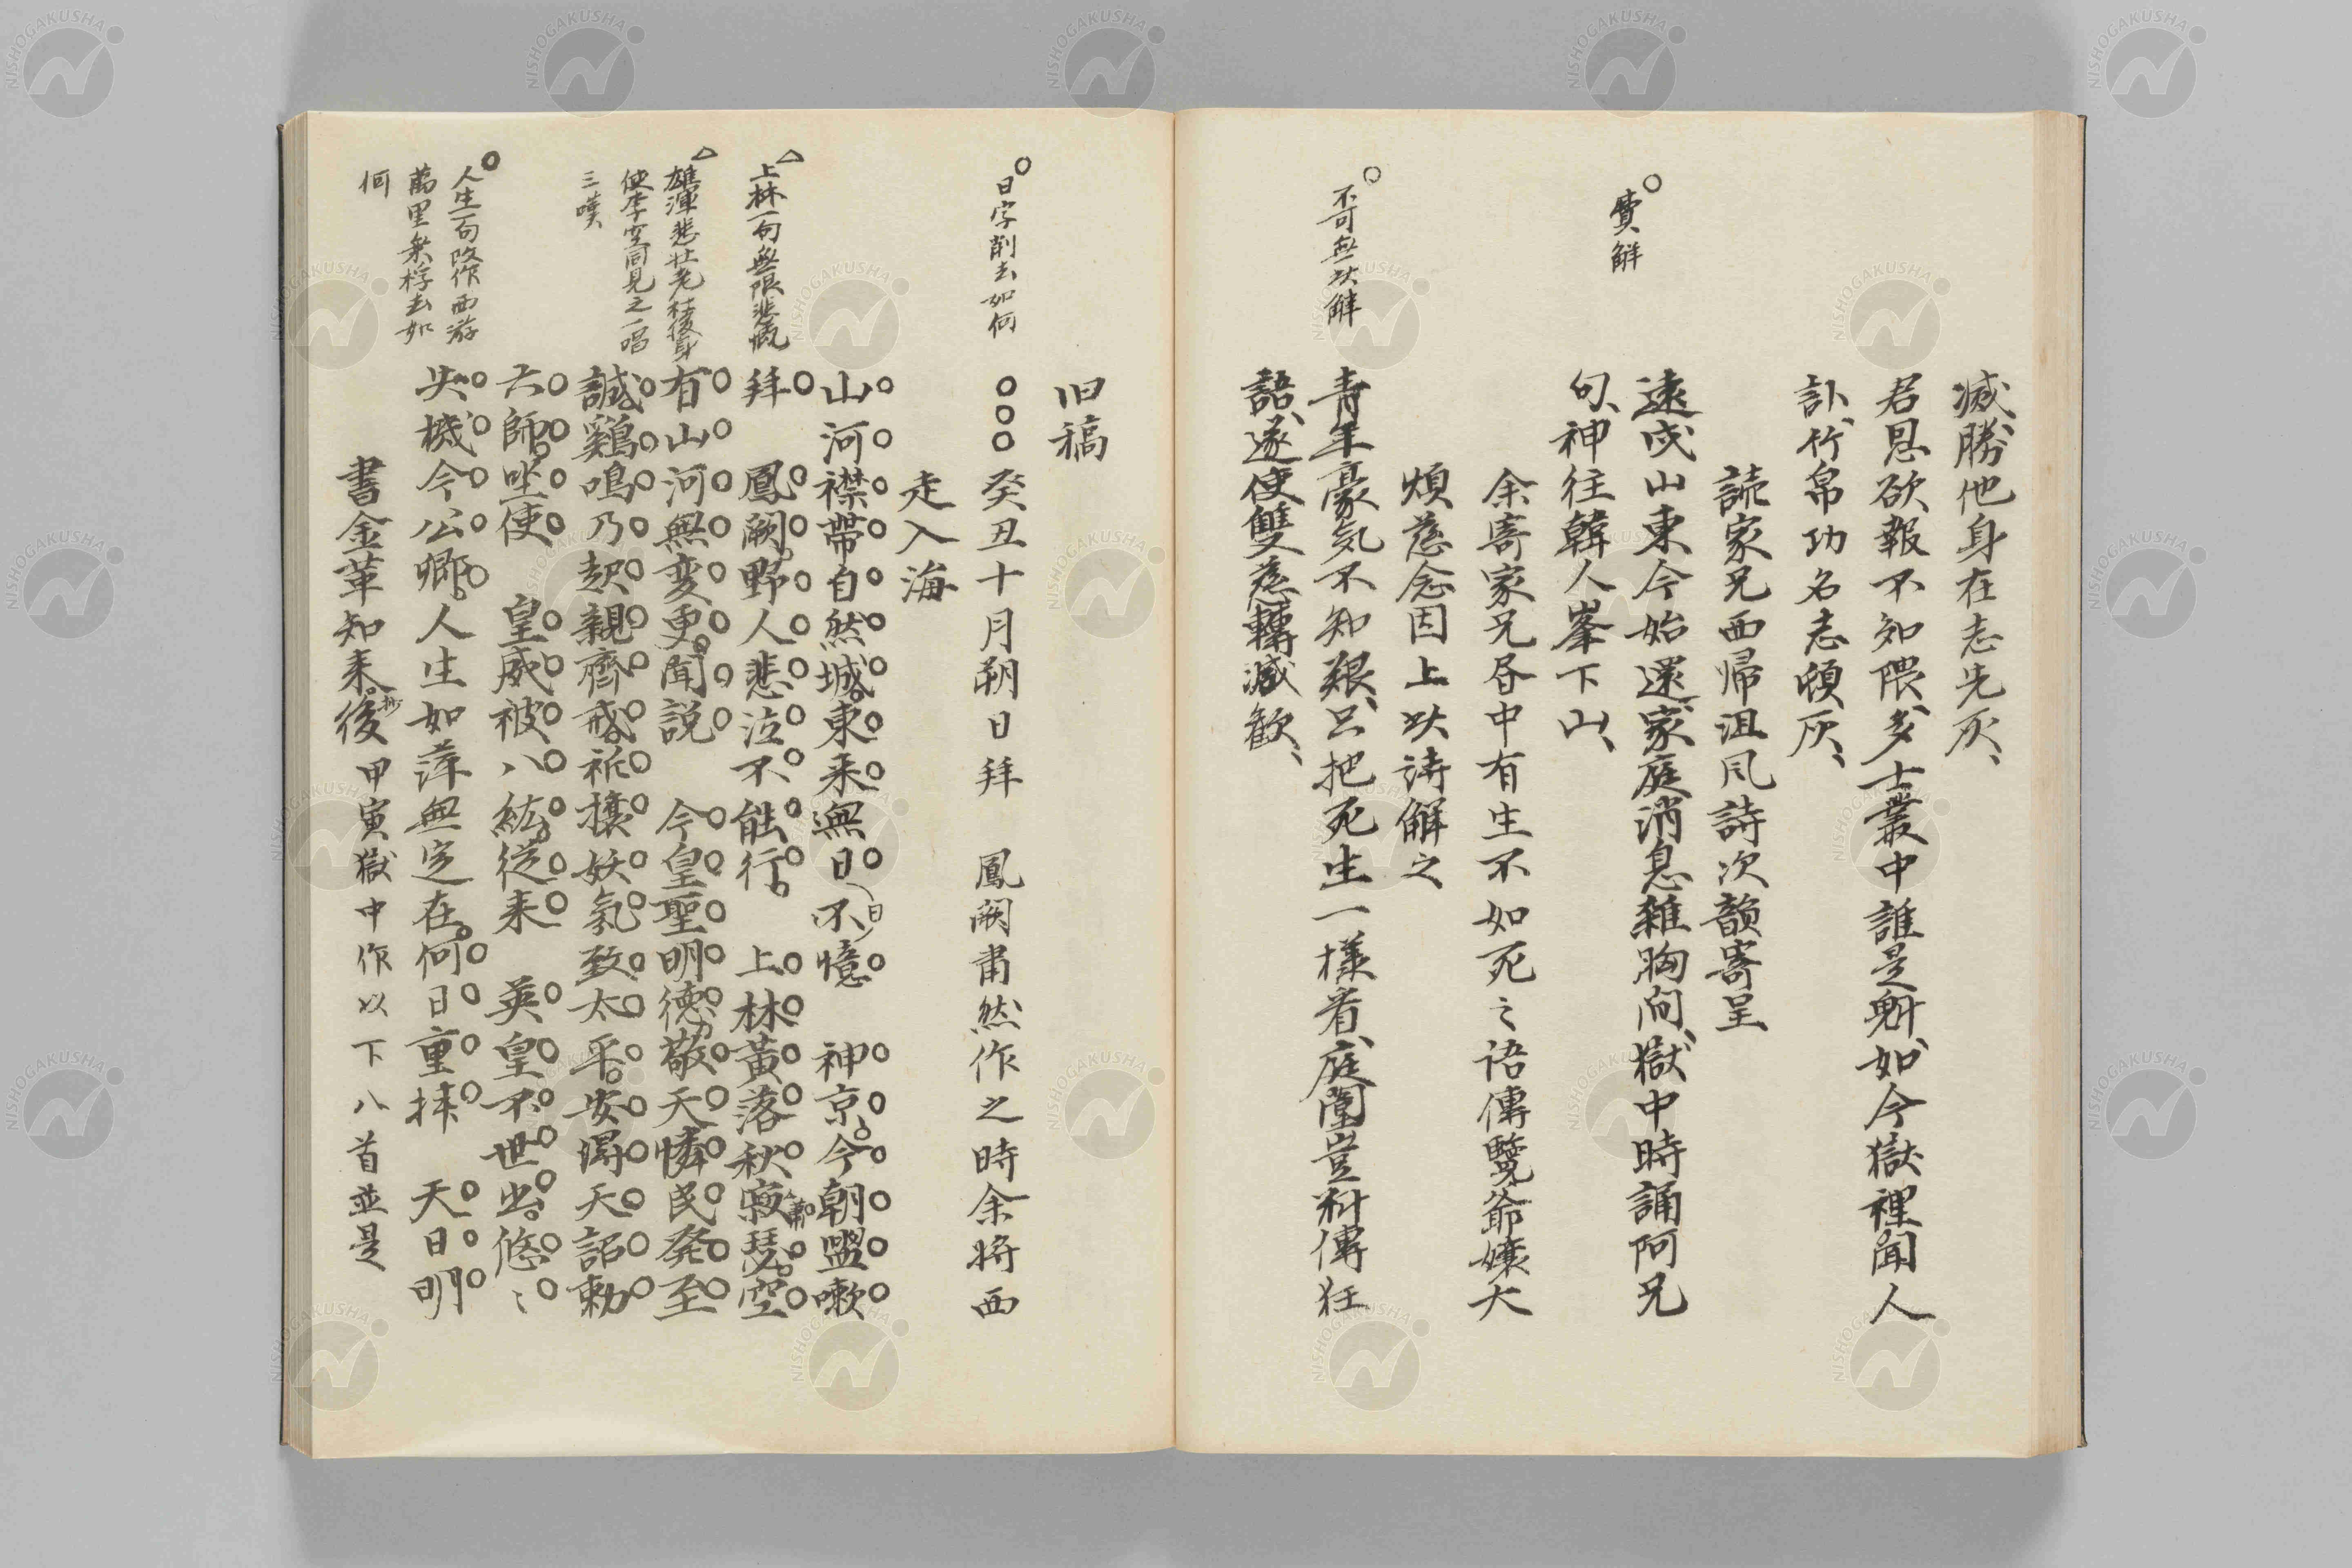 滅、勝他身在志先灰、
君恩欲報不知隈、多士叢中誰是魁、如今獄裡聞人
訃、竹帛功名志頓灰、
読家兄西帰沮風詩次韻寄呈
賣解
遠戍山東今始還、家庭消息雑胸間、獄中時誦阿兄
句、神往韓人峯下山、
余寄家兄昏中有生不如死之語傳覽爺嬢大
煩慈念因上以詩解之
不可無以解
青年豪気不知艱、只把死生一様看、庭闈豈料傳狂
語、遂使雙慈轉減歓、
旧稿
日字削去如何
癸丑十月朔日拜 鳳闕肅然作之時余将西
走入海
山河襟帯自然城。東来無日(日)不憶 神京。今朝盥嗽
上林一句無限悲慨
拜 鳳闕。野人悲泣不能行。 上林黄落秋寂寥。空
雄渾悲壮老杜後身
使李空同見之一唱
三嘆
有山河無変更。聞説 今皇聖明徳。敬天憐民発至
誠。鷄鳴乃起親齊戒。祈攘妖氛致太平。安得天詔勅
六師。坐使 皇威被八紘。従来 英皇不世出。悠々
人生一句改作西游
萬里乗桴去如
何
失機今公卿。人生如萍無定在。何日重拝 天日明
書金革知来後 甲寅獄中作以下八首並是
NISHOGAKUSHA